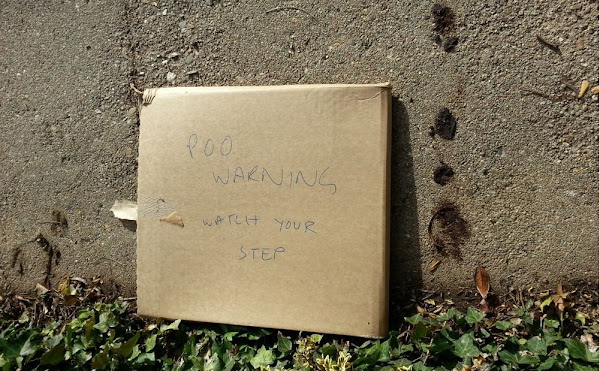 POO
WARNING
WATCH YOUR
STEP